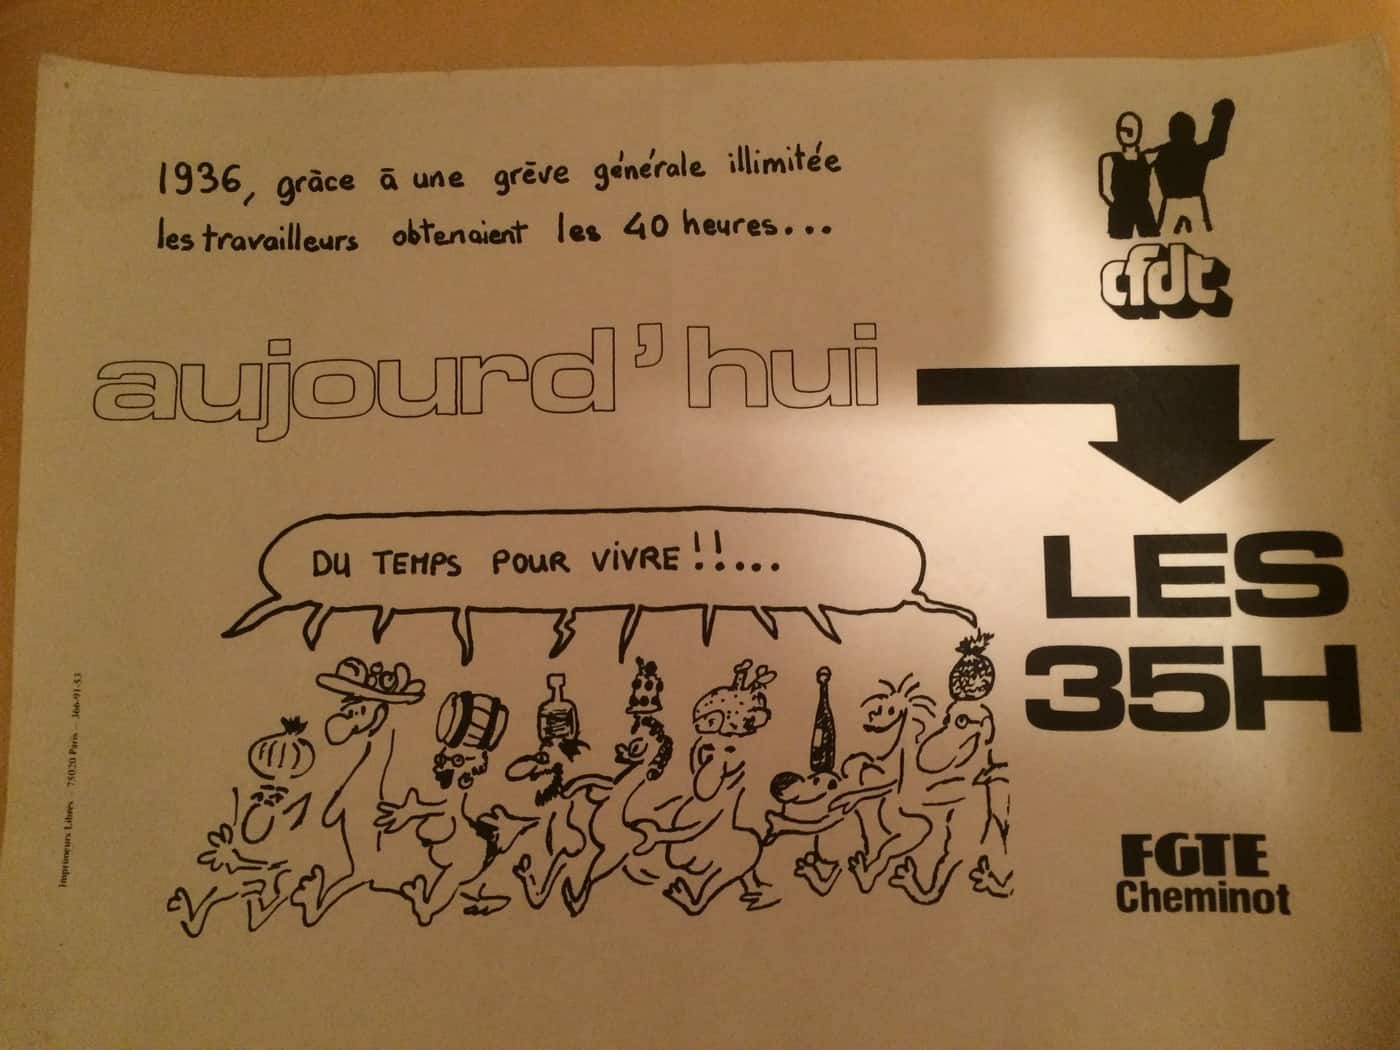 1936, grāce ā une grēve générale illimitée
les travailleurs obtenaient les 40 heures...
cfdt
aujourd'hui
LES
35H
DU TEMPS POUR VIVRE!!....
FGTE
Cheminot
Imprimeurs Libres - 75020 Paris - 366-91-53